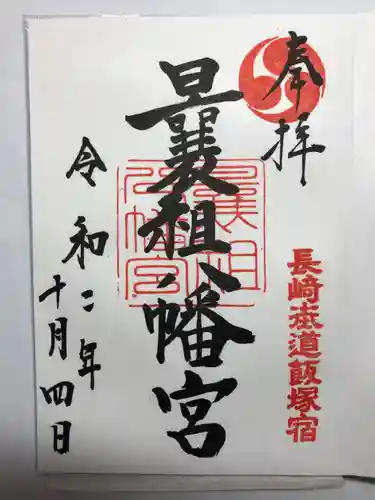 奉拝
長崎街道飯塚宿
曩祖八幡宮
曩祖八幡宮
令和二年
十月四日